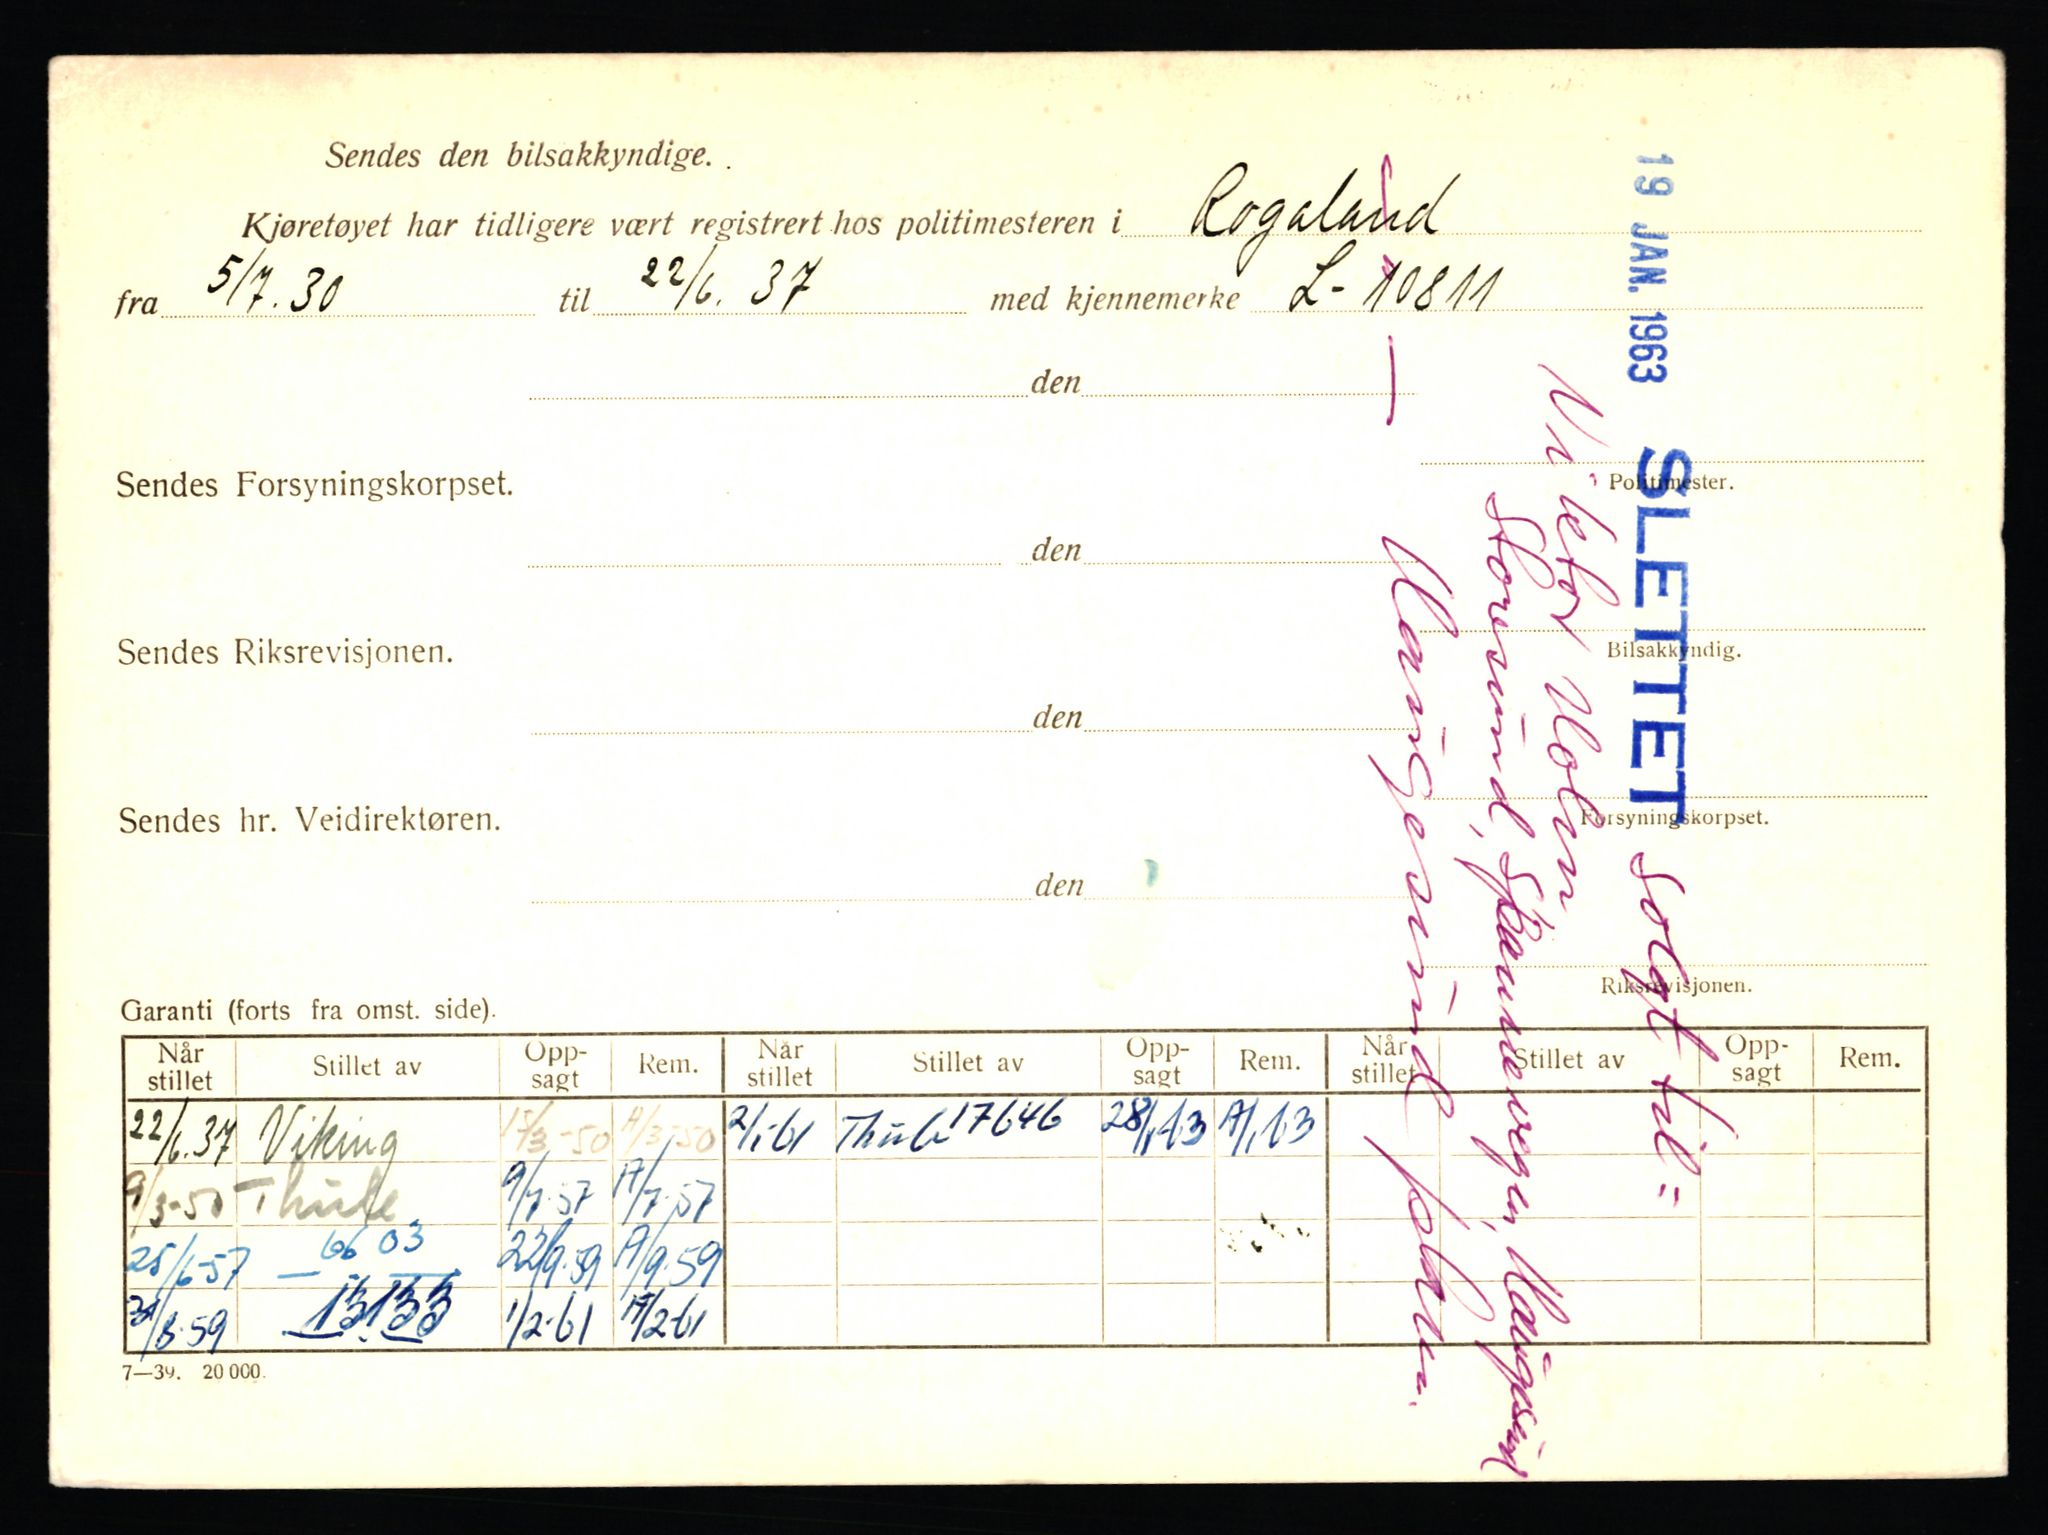 Sendes den bilsakkyndige.
Kjøretøyet har tidligere vært registrert hos politimesteren i Rogaland
fra 5/7.30 til 22/6.37 med kjennemerke L-10811
den
Politimester.
Sendes Forsyningskorpset.
den
Bilsakkyndig.
Sendes Riksrevisjonen.
den
Forsyningskorpset.
Sendes hr. Veidirektøren.
den
Riksrevisjonen.
19 JAN. 1963 SLETTET Solgt til:
Viktor Holm
Storesund, Spannavegen, Haugesund
— Haugesund politim.
Garanti (forts fra omst. side).
Når stillet Stillet av Opp-sagt Rem. Når stillet Stillet av Opp-sagt Rem. Når stillet Stillet av Opp-sagt Rem.
22/6.37 Viking 15/3-50 A/3-50 2/1-61 Thule 17646 28/1.63 A/1.63
9/3-50 Thule 9/7.57 A/7.57
25/6-57 — 6603 22/9.59 A/9.59
8.59 — 13133 1/2-61 A/2-61
7—39. 20 000.